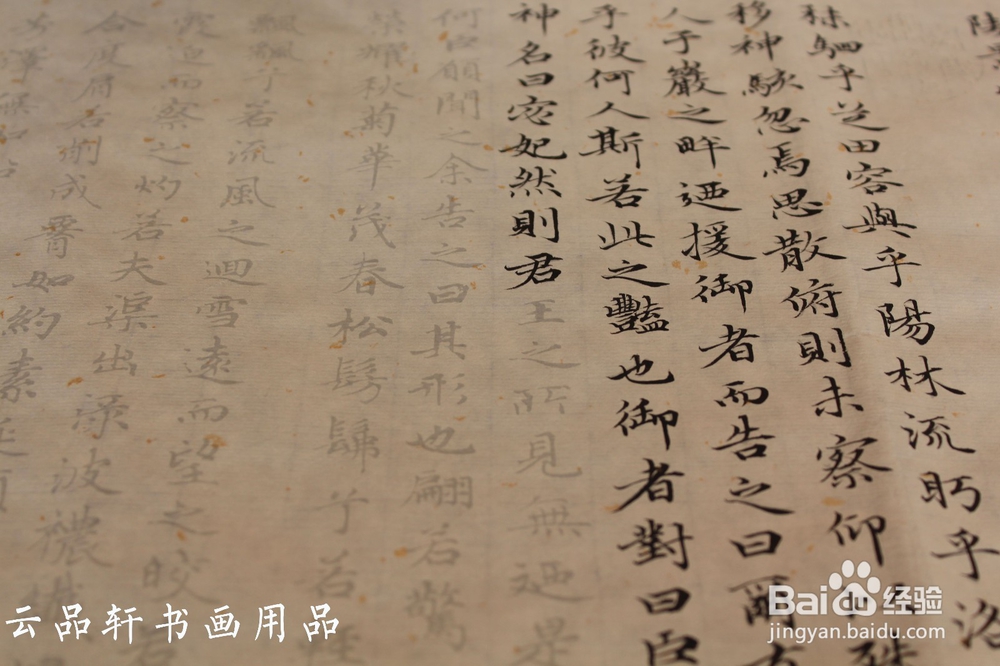 陵景
秣駟乎芝田容與乎陽林流眄乎洛
移神駭忽焉思散俯則未察仰以殊
人于巖之畔迺援御者而告之曰爾有
乎彼何人斯若此之豔也御者對曰臣
神名曰宓妃然則君王之所見無迺是
何臣願聞之余告之曰其形也翩若驚
榮耀秋菊華茂春松髣髴兮若輕
飄飖兮若流風之迴雪遠而望之皎若
霞迫而察之灼若夫渠出淥波襛
合度肩若削成腰如約素延頸
芳澤無加
云品轩书画用品
Baidu经验
jingyan.baidu.com